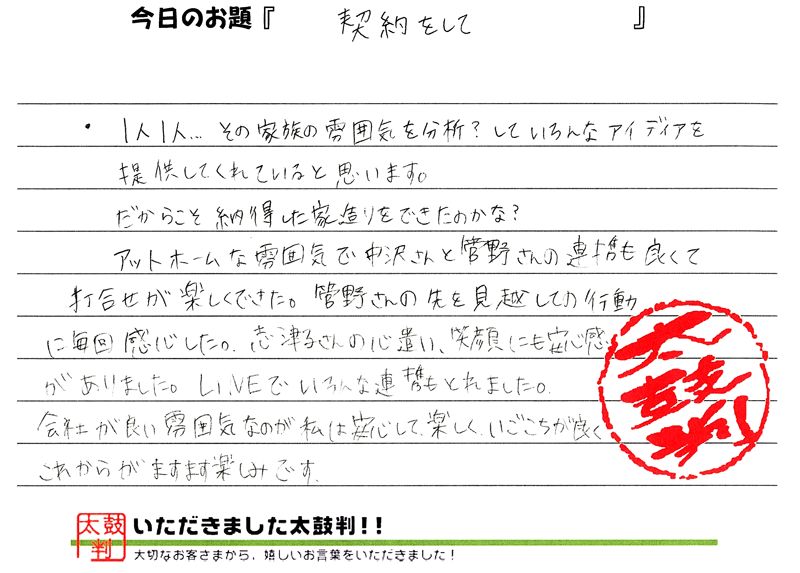 今日のお題『 契約をして 』
・1人1人…その家族の雰囲気を分析?していろんなアイディアを
提供してくれていると思います。
だからこそ納得した家造りをできたのかな?
アットホームな雰囲気で中沢さんと管野さんの連携も良くて
打合せが楽しくできた。管野さんの先を見越しての行動
に毎回感心した。志津子さんの心遣い、笑顔にも安心感
がありました。LINEでいろんな連携もとれました。
会社が良い雰囲気なのが私は安心して、楽しく、いごこちが良く
これからがますます楽しみです。
太鼓判
太鼓判
いただきました太鼓判!!
大切なお客さまから、嬉しいお言葉をいただきました!